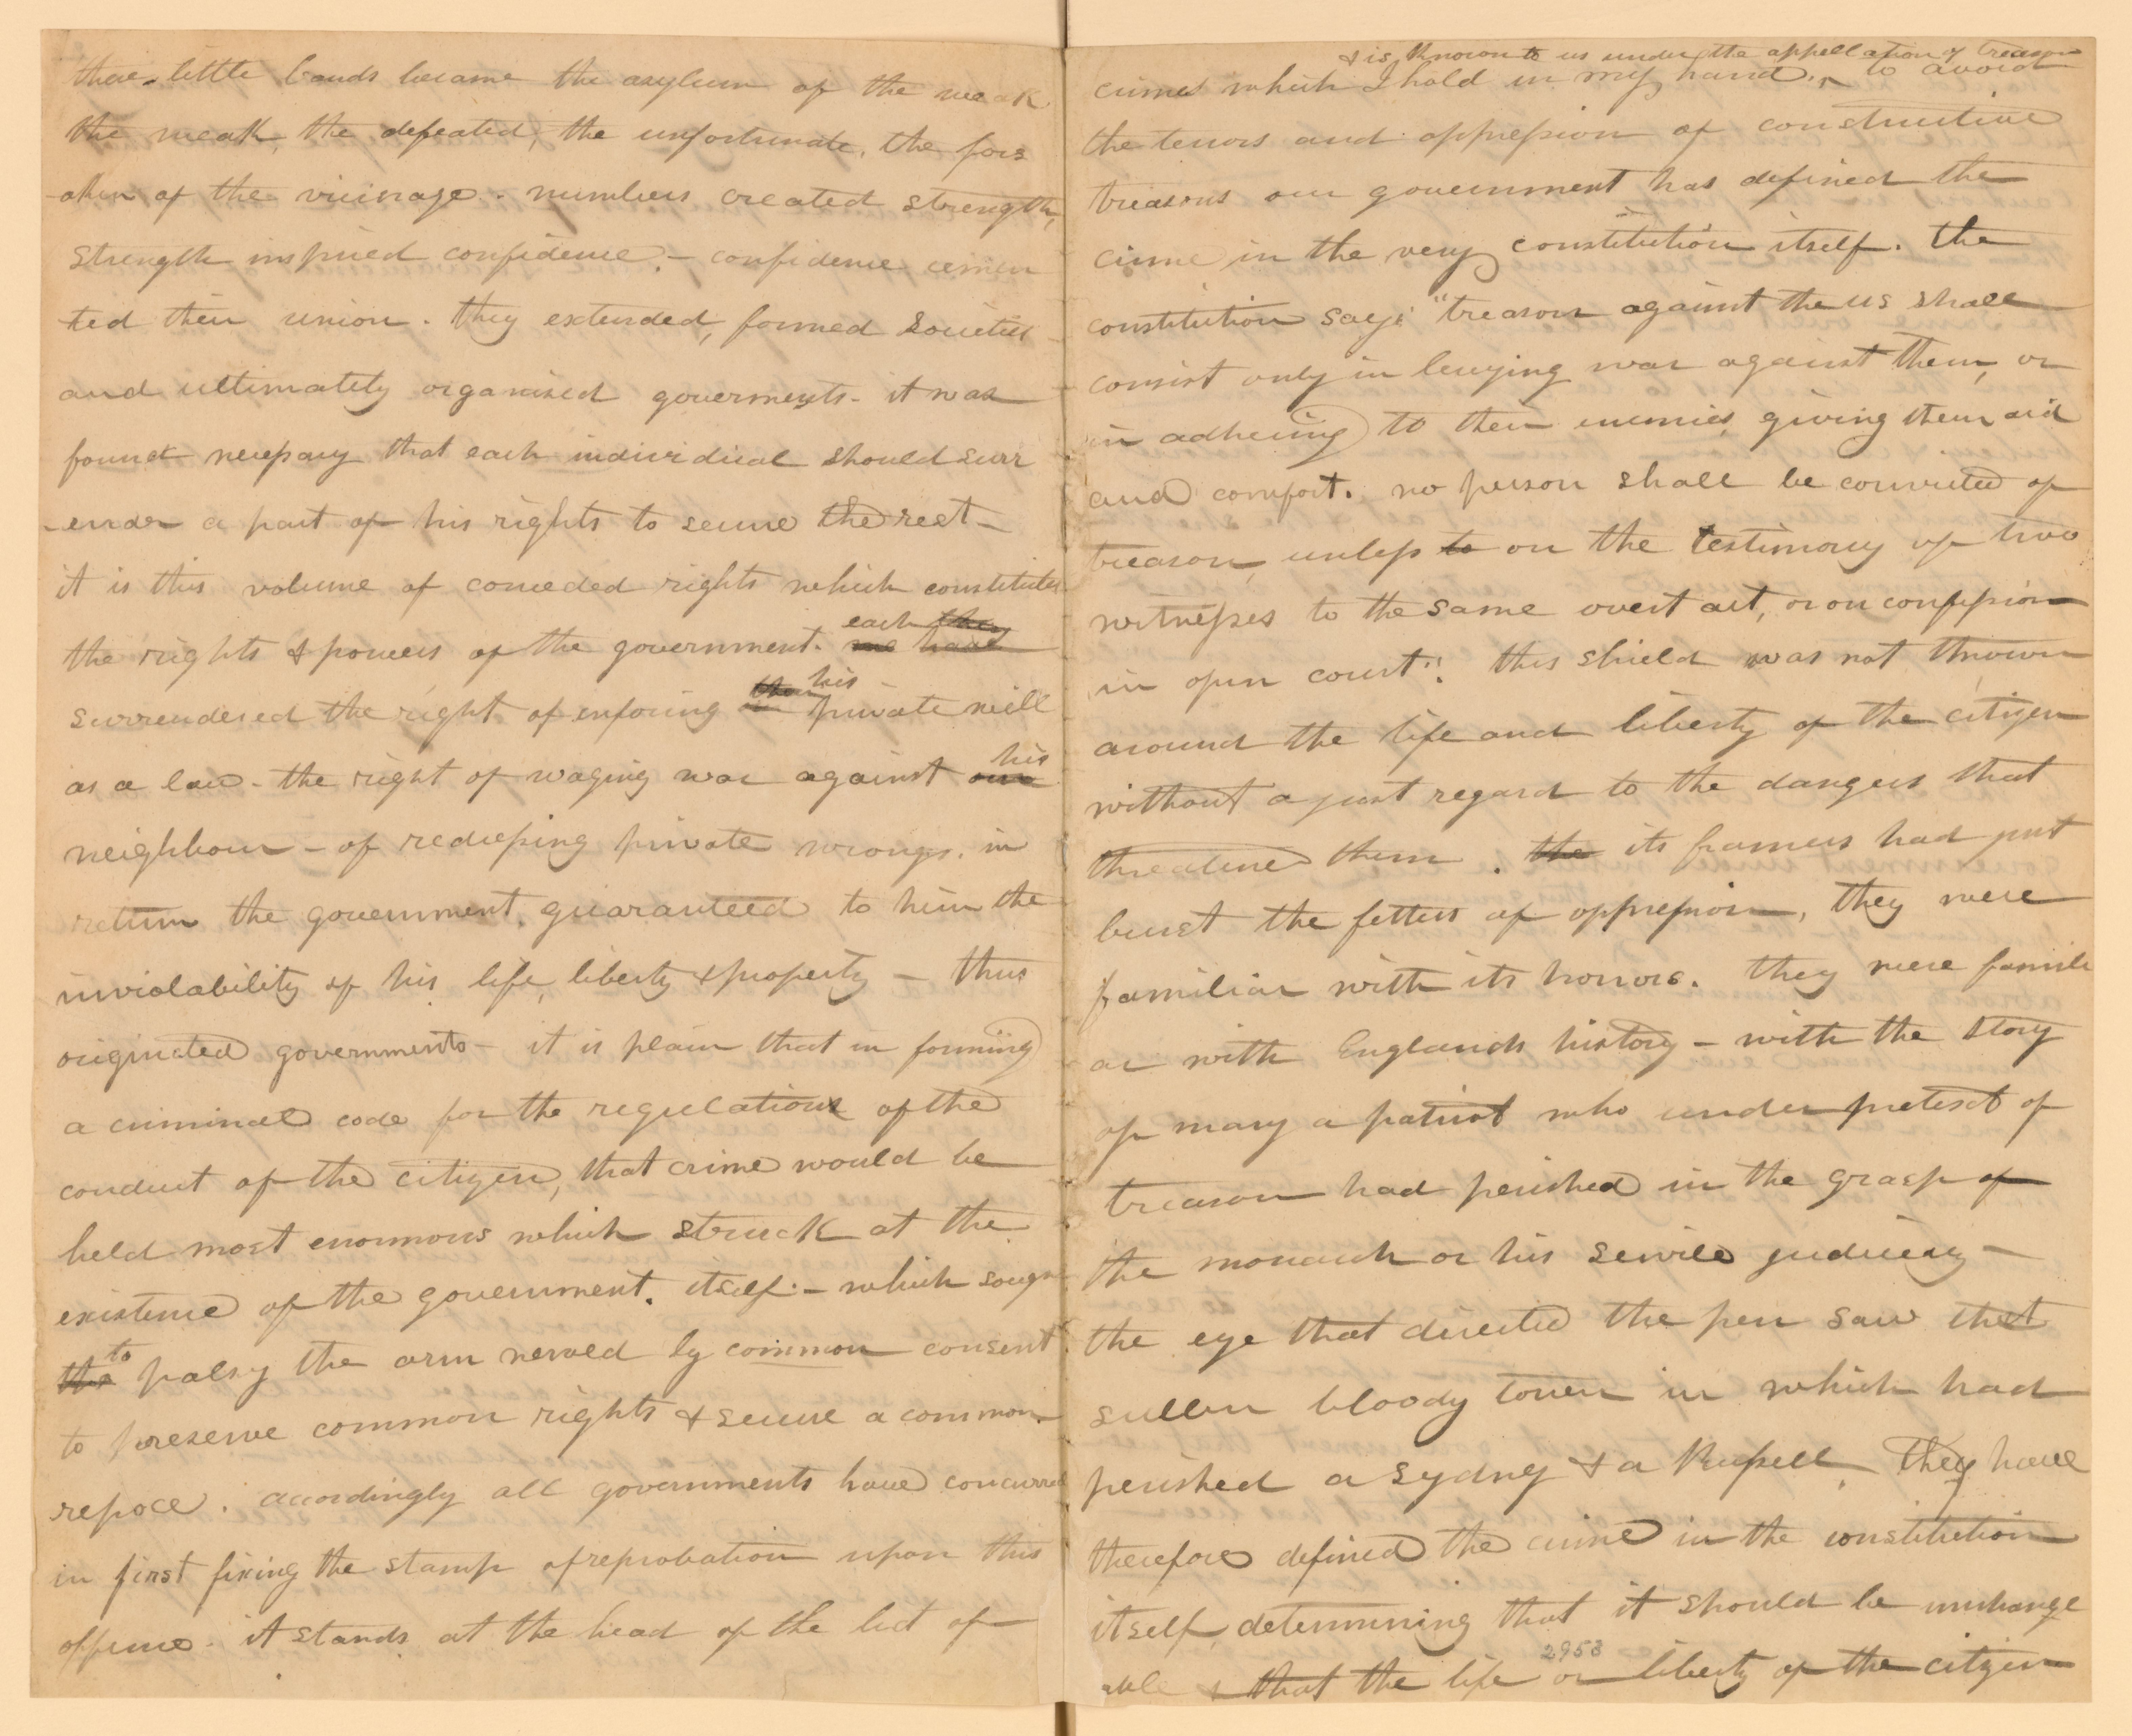 these little bands became the asylum of the weak
the weak, the defeated, the unfortunate, the fors
-aken of the vicinage. numbers created strength,
strength inspired confidence. - confidence cemen
ted their union. they extended, formed societies
and ultimately organised goverments. it was
found necessary that each individual should surr
-ender a part of his rights to secure the rest -
it is this volume of conceded rights which constitutes
each they
the rights & powers of the government. we have
their his
surrendered the right of enforcing our private will
his
as a law - the right of waging war against our
neighbour - of redressing private wrongs. in
return the government guaranteed to him the
inviolability of his life, liberty & property - thus
originated governments - it is plain that in forming
a criminal code for the regulations of the
conduct of the citizen, that crime would be
held most enormous which struck at the
existence of the government itself - which sough
to
the palsy the arm nerved by common consent
to preserve common rights & secure a common
repose. accordingly all governments have concurred
in first fixing the stamp of reprobation upon this
offence. it stands at the head of the list of
& is known to us under the appellation of treason
crimes which I hold in my hand. ^ to avoid
the terrors and oppression of constructive
treasons our government has defined the
crime in the very constitution itself. the
constitution says "treason against the us shall
consist only in levying war against them, or
in adhering to their enemies, giving them aid
and comfort. no person shall be convicted of
treason, unless to on the testimony of two
witnesses to the same overt act, or on confession
in open court". this shield was not thrown
around the life and liberty of the citizen
without a just regard to the dangers that
threatened them. the its framers had just
burst the fetters of oppression, they were
familiar with its horrors. they were famili
ar with Englands history - with the story
of many a patriot who under pretext of
treason had perished in the grasp of
the monarch or his servile judiciary -
the eye that directed the pen saw that
sullen bloody tower in which had
perished a Sydney & a Russell. They have
therefore defined the crime in the constitution
itself, determining that it should be unchange
able & that the life or liberty of the citizen
2953